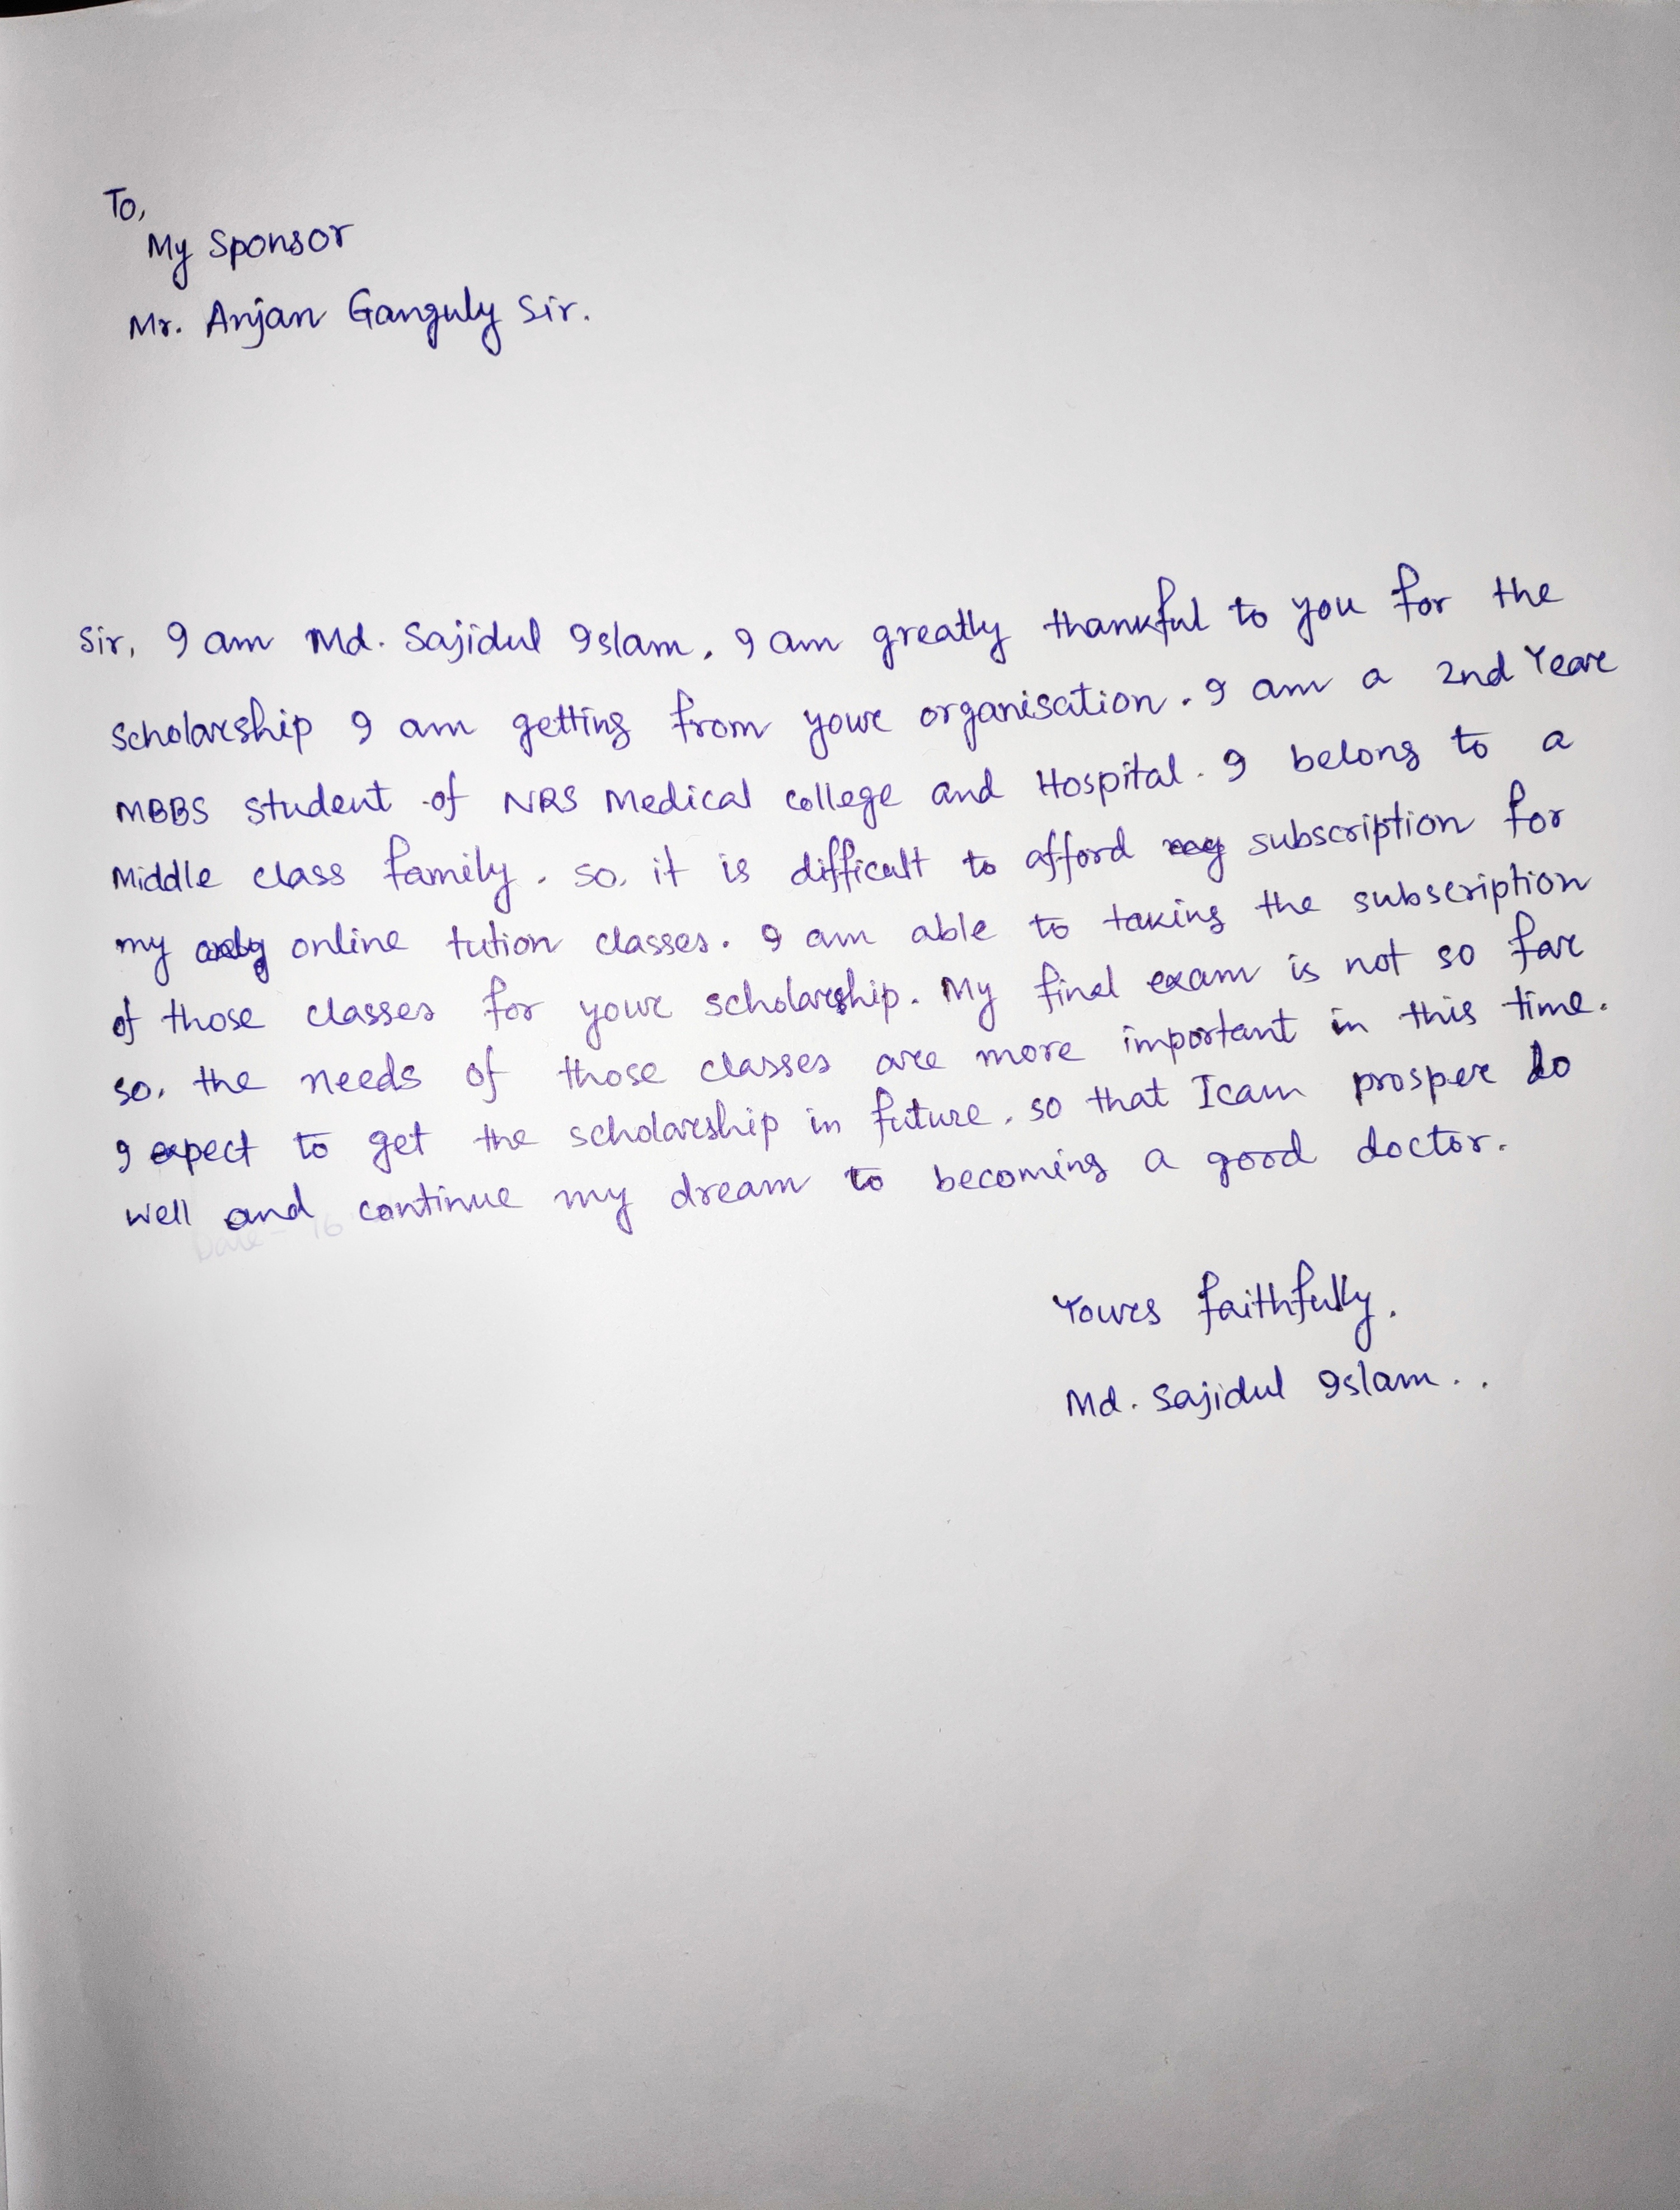 To,
My Sponsor
Mr. Anjan Ganguly Sir.
Sir, I am Md. Sajidul Islam, I am greatly thankful to you for the
Scholarship I am getting from your organisation. I am a 2nd Year
MBBS student of NRS Medical College and Hospital. I belong to a
Middle class family. So, it is difficult to afford subscription for
my online tution classes. I am able to taking the subscription
of those classes for your scholarship. My final exam is not so far
so, the needs of those classes are more important in this time.
I expect to get the scholarship in future, so that I can prosper do
well and continue my dream to becoming a good doctor.
Yours faithfully,
Md. Sajidul Islam..